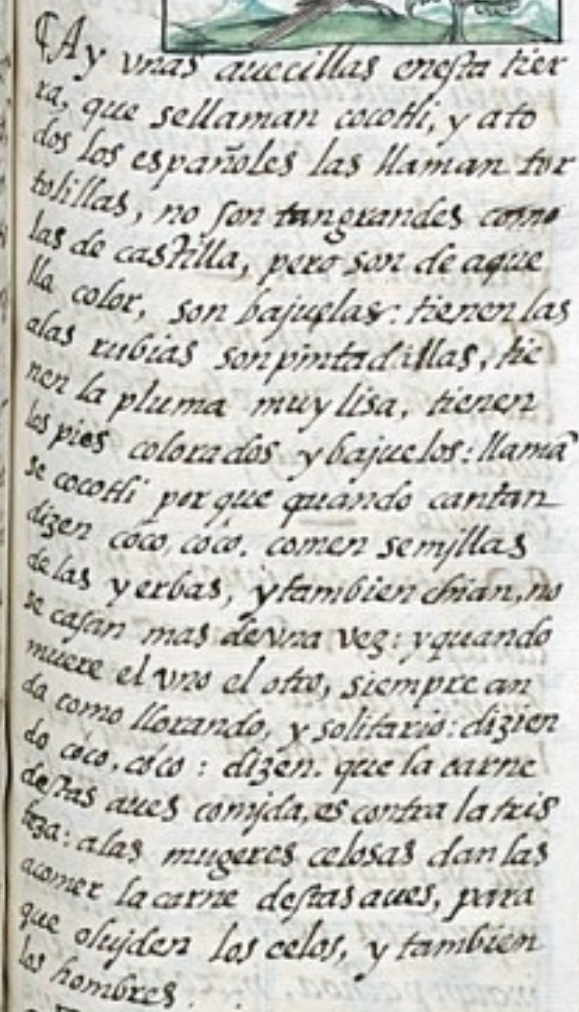 ¶Ay vnas auecillas enesta tier
ra, que sellaman cocotli, y ato
dos los españoles las llaman tor
tolillas, no son tangrandes como
las de castilla, pero son de aque
lla color, son bajuelas: tienen las
alas rubias son pintadillas, tie
nen la pluma muy lisa, tienen
los pies colorados y bajuelos: llamā
se cocotli por que quando cantan
dizen cóco, cóco. comen semjllas
de las yerbas, y tambien chian, no
se casan mas de vna vez: y quando
muere el vno el otro, siempre an
da como llorando, y solitario: dizien
do cóco, cóco: dizen. que la carne
destas aues comjda, es contra la tris
teza: alas mugeres celosas dan las
acomer la carne destas aues, para
que olujden los celos, y tambien
los hombres.